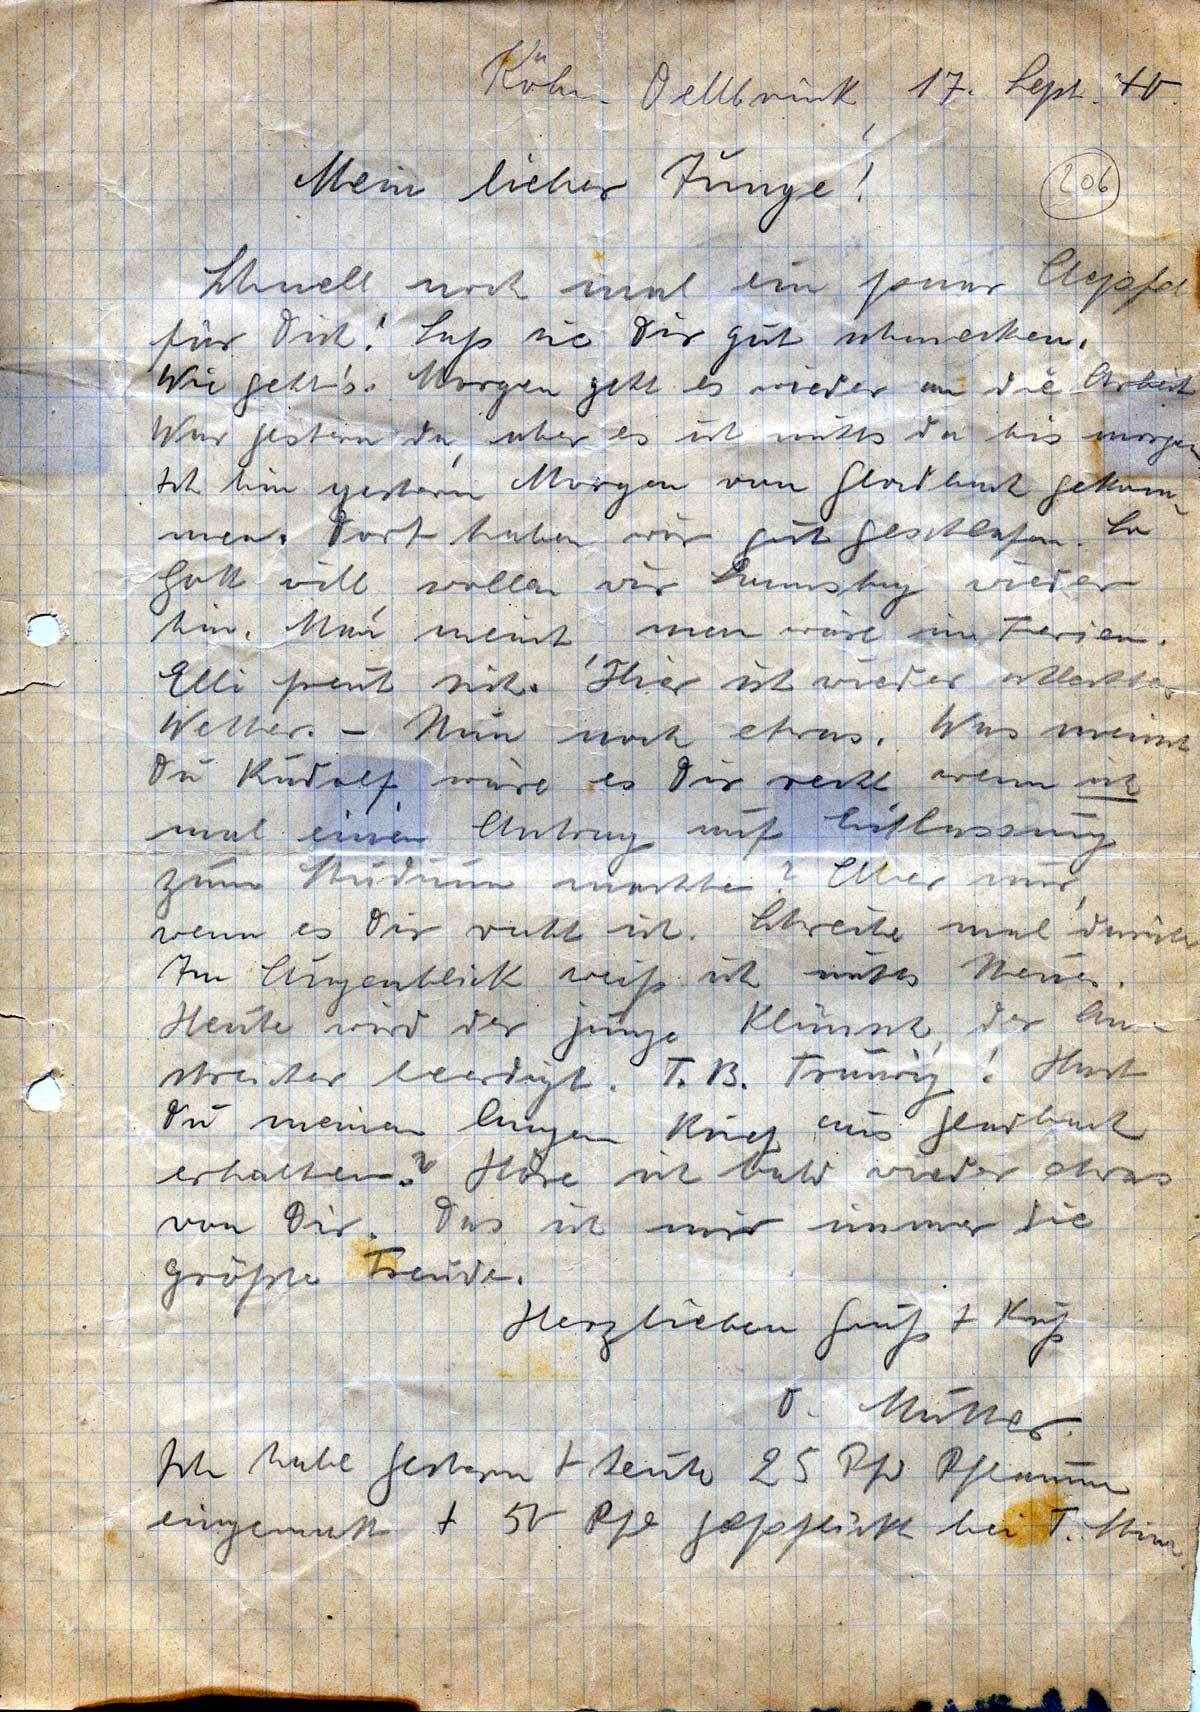 Köln-Dellbrück, 17. Sept. 40.
Mein lieber Junge!
206
Schnell noch mal ein paar Aepfel
für Dich! Laß sie Dir gut schmecken.
Wie geht's. Morgen geht es wieder an die Arbeit
War gestern da, aber es ist nichts da bis morgen
Ich bin gestern Morgen von Gladbach gekom-
men. Dort haben wir gut geschlafen. So
Gott will, wollen wir Samstag wieder
hin. Man meint, man wäre in Ferien.
Elli freut sich. Hier ist wieder schlechtes
Wetter. – Nun noch etwas. Was meinst
Du Rudolf, wäre es Dir recht, wenn ich
mal einen Antrag auf Entlassung
zum Studium machte? Aber nur,
wenn es Dir recht ist. Schreibe mal darüber
Im Augenblick weiß ich nichts Neues.
Heute wird der junge der An-
streicher beerdigt. T. B. Traurig! Hast
Du meinen langen Brief aus Gladbach
erhalten? Höre ich bald wieder etwas
von Dir. Das ist mir immer die
größte Freude.
Herzlieben Gruß + Kuß
D. Mutter.
Ich habe gestern + heute 25 Pfd Pflaumen
eingemacht + 50 Pfd gepflückt bei T.